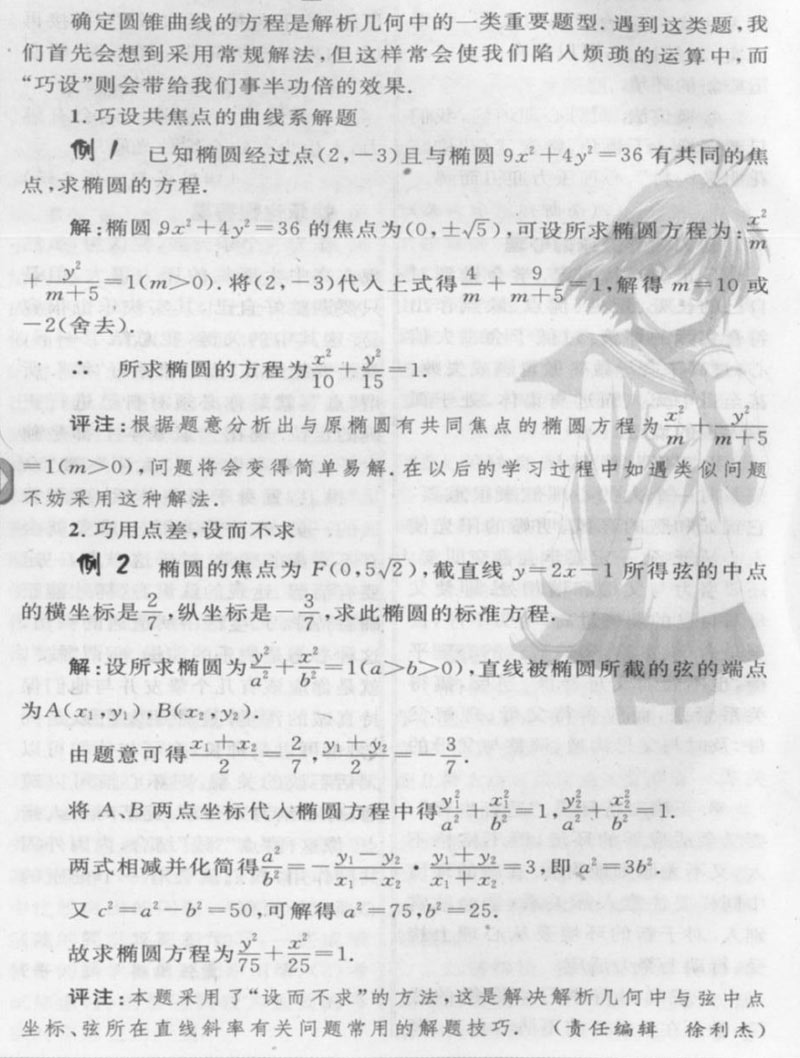 确定圆锥曲线的方程是解析几何中的一类重要题型.遇到这类题,我
们首先会想到采用常规解法,但这样常会使我们陷入烦琐的运算中,而
“巧设”则会带给我们事半功倍的效果.
1.巧设共焦点的曲线系解题
例1 已知椭圆经过点(2,-3)且与椭圆 9x²+4y²=36 有共同的焦
点,求椭圆的方程.
解:椭圆 9x²+4y²=36 的焦点为(0,±√5),可设所求椭圆方程为:x²/m
+y²/(m+5)=1(m>0).将(2,-3)代入上式得4/m+9/(m+5)=1,解得 m=10 或
-2(舍去).
∴ 所求椭圆的方程为x²/10+y²/15=1.
评注:根据题意分析出与原椭圆有共同焦点的椭圆方程为x²/m+y²/(m+5)
=1(m>0),问题将会变得简单易解.在以后的学习过程中如遇类似问题
不妨采用这种解法.
2.巧用点差,设而不求
例2 椭圆的焦点为 F(0,5√2),截直线 y=2x-1 所得弦的中点
的横坐标是2/7,纵坐标是-3/7,求此椭圆的标准方程.
解:设所求椭圆为y²/a²+x²/b²=1(a>b>0),直线被椭圆所截的弦的端点
为A(x₁,y₁)、B(x₂,y₂).
由题意可得(x₁+x₂)/2=2/7,(y₁+y₂)/2=-3/7.
将 A、B 两点坐标代入椭圆方程中得y₁²/a²+x₁²/b²=1,y₂²/a²+x₂²/b²=1.
两式相减并化简得a²/b²=-(y₁-y₂)/(x₁-x₂)·(y₁+y₂)/(x₁+x₂)=3,即 a²=3b².
又 c²=a²-b²=50,可解得 a²=75,b²=25.
故求椭圆方程为y²/75+x²/25=1.
评注:本题采用了“设而不求”的方法,这是解决解析几何中与弦中点
坐标、弦所在直线斜率有关问题常用的解题技巧. (责任编辑 徐利杰)